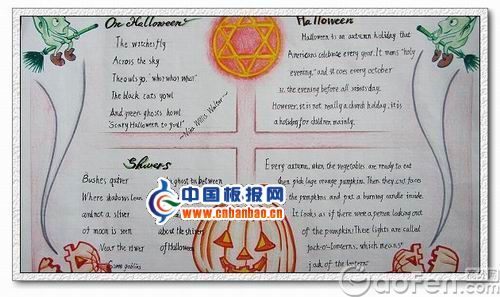 On Halloween
The witches fly
Across the sky
The owls go, "who! who! who!"
The black cats yowl
And green ghosts howl
Scary Halloween to you!"
~Nina Willis Walter~
Halloween
Halloween is an autumn holiday that
Americans celebrate every year. It means "holy
evening," and it comes every october
is the evening before all saints day.
However, it is not really a church holiday, it is
a holiday for children mainly.
Shivers
Bushes quiver
Where shadows
and not a sliver
of moon is seen
Near the river
Some goblins
ghost
between
about the shivers
of Halloween
Every autumn, when the vegetables are ready to eat
then pick large orange pumpkins. Then they cut faces
the pumpkins and put a burning candle inside.
It looks as if there were a person looking out
of the pumpkin! These lights are called
jack-o'-lanterns, which means"
jack of the lantern"
中国板报网
www.cnbanbao.cn
GaoFen.com